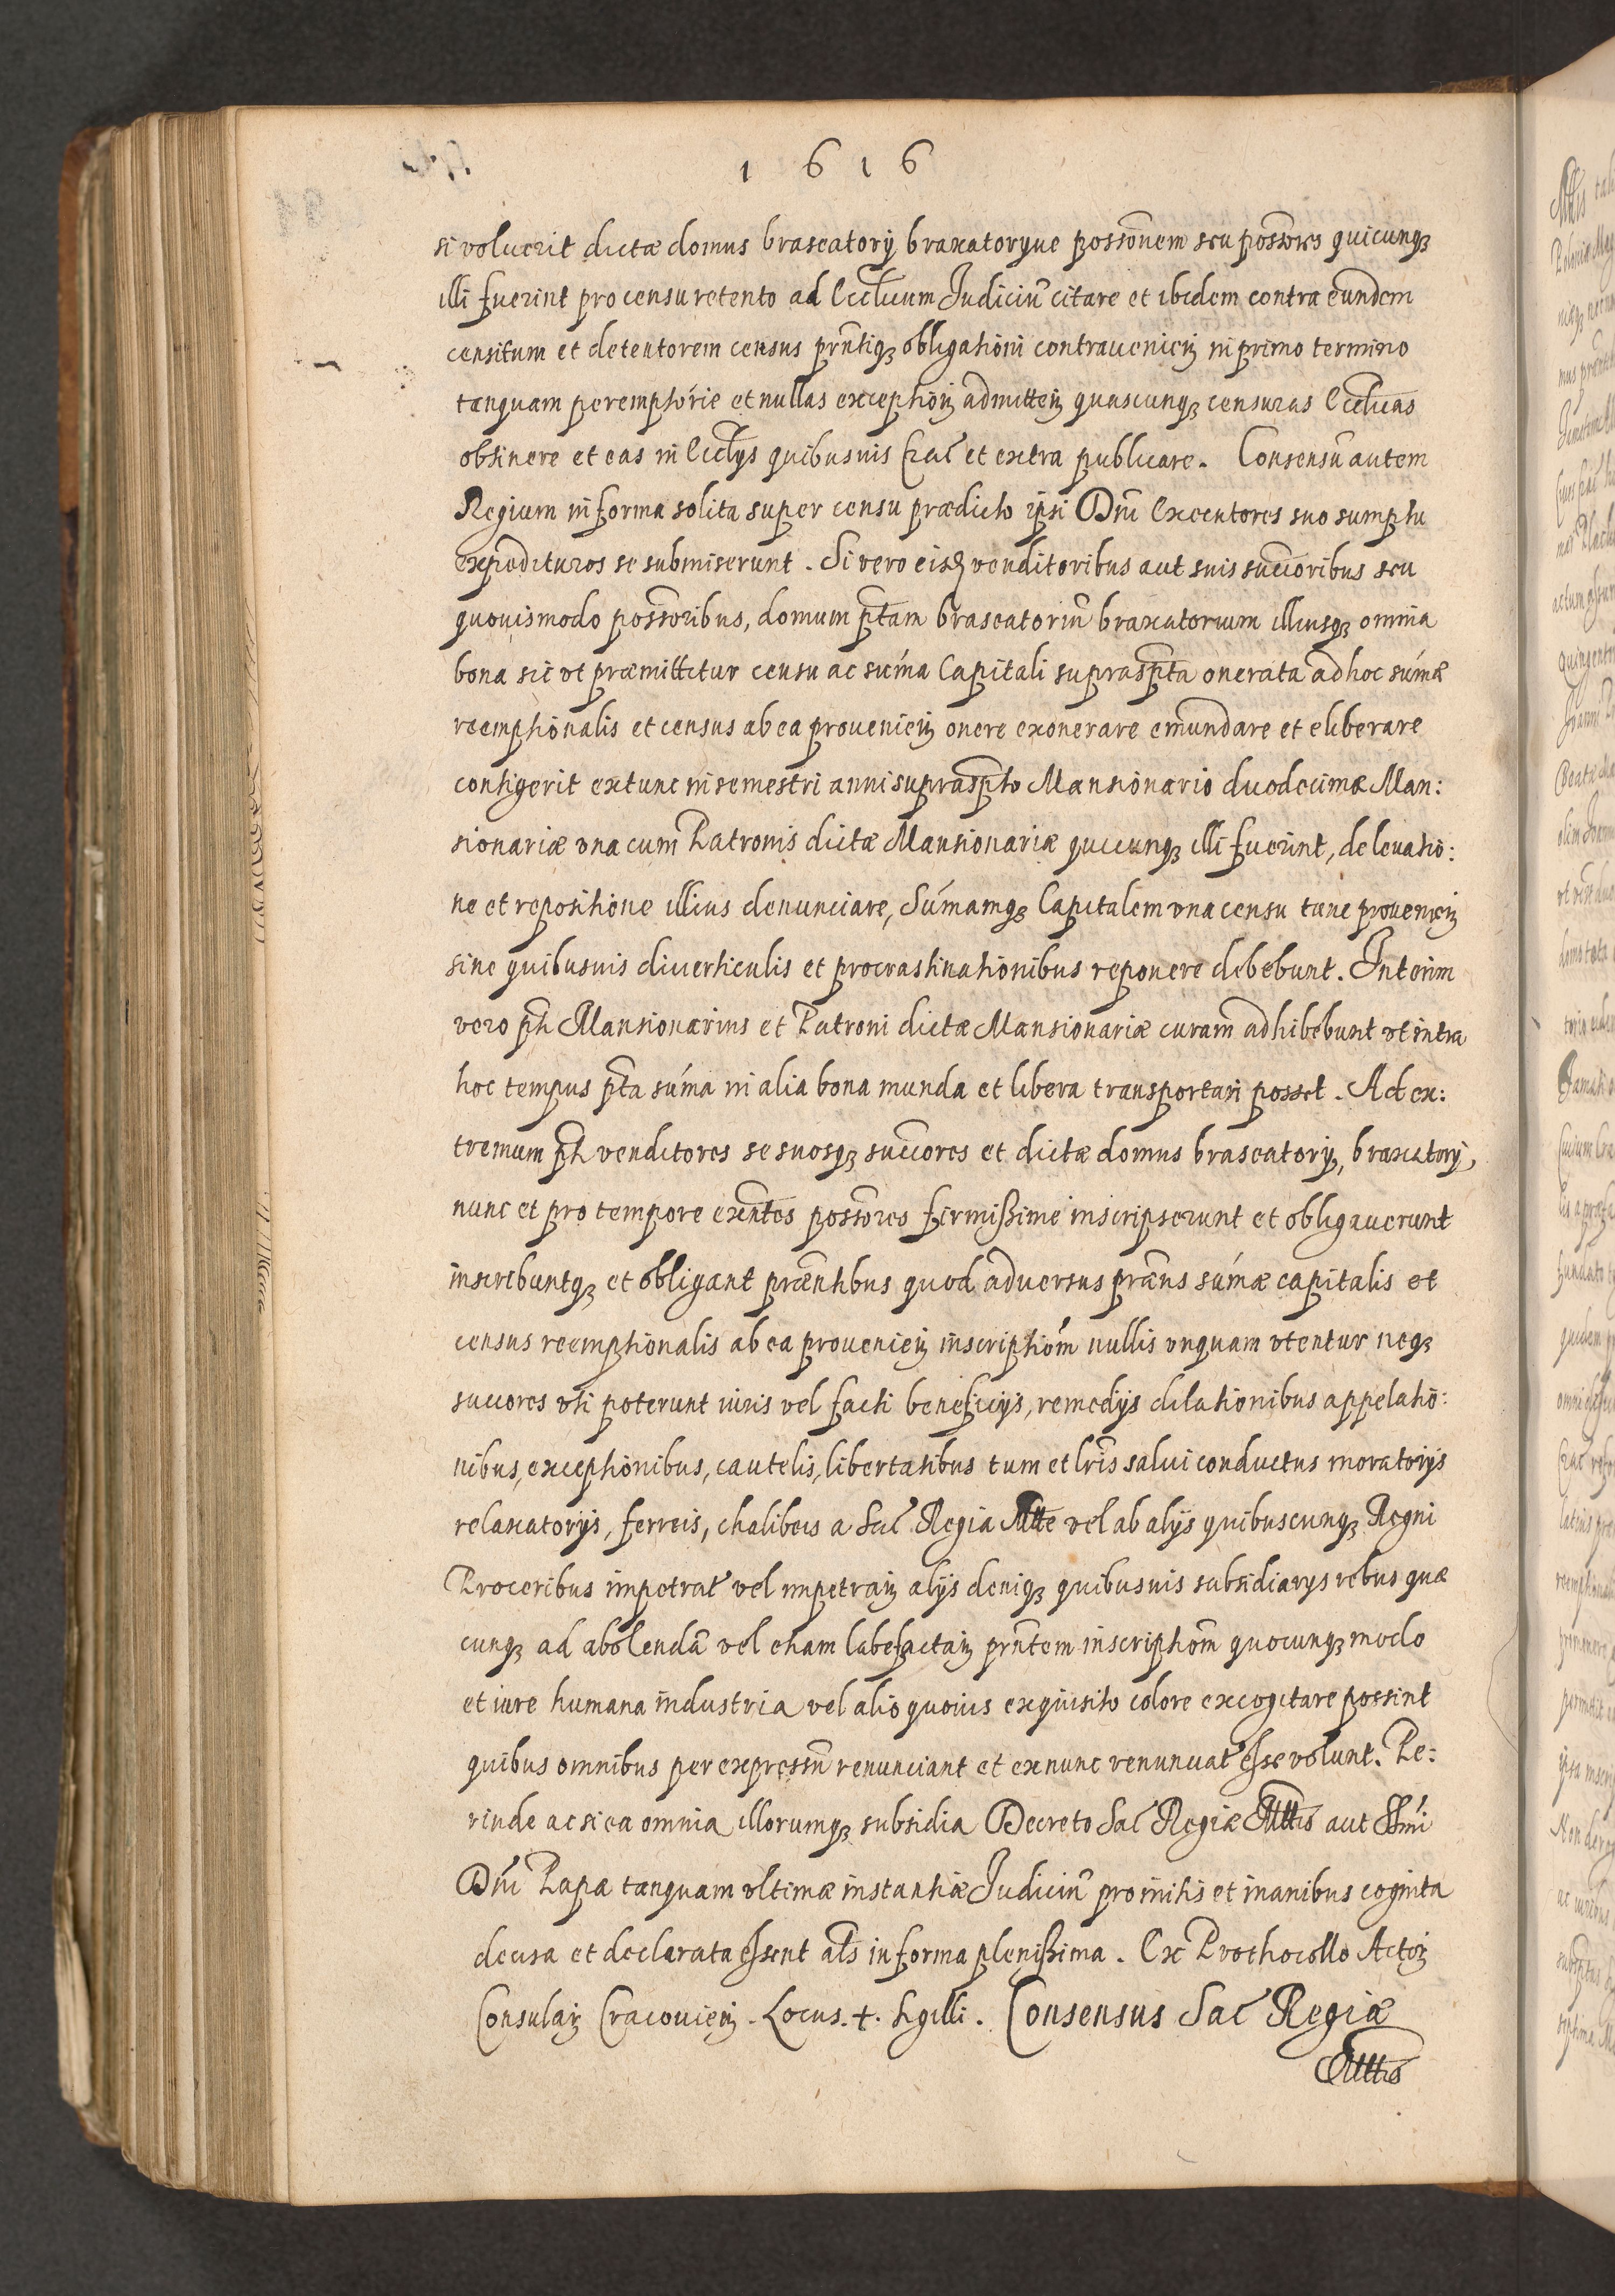 1616
si voluerit dictæ domus braseatorij braxatoryue possõnem seu possõres quicunqꝫ
illi fuerint pro censu retento ad Ecclicum Judiciũ citare et ibidem contra eundem
censitum et detentorem census prñtiqꝫ obligationi contravenień in primo termino
tanquam peremptorie et nullas exception admitteñ quascunqꝫ censuras Ecclicas
obtinere et eas in Ecclijs quibusuis Crac̃ et extra publicare. Consensũ autem
Regium in forma solita super censu prædicto ipsi Dñi Executores suo sumptu
expedituros se submiserunt. Si vero eisd venditoribus aut suis succõribus seu
quouismodo possoribus, domum ptam braseatoriũ braxatorium illiusqꝫ omnia
bona sic vt præmittitur censu ac sum̃a Capitali suprascpta onerata ad hoc sum̃æ
reemptionalis et census ab ea provenień onere exonerare emundare et eliberare
contigerit extunc in semestri anni suprascpto Mansionario duodecimæ Man:
sionariæ vna cum Patronis dictæ Mansionariæ quicunqꝫ illi fuerint, de levatio:
ne et repositione illius denunciare, Sum̃amqꝫ Capitalem vna censu tunc provenień
sine quibusuis diverticulis et procrastinationibus reponere debebunt. Interim
vero pti Mansionarius et Patroni dictæ Mansionariæ curam adhibebunt vt intra
hoc tempus pta sum̃a in alia bona munda et libera transportari posset. Ad ex:
tremum pti venditores se suosqꝫ succõres et dictæ domus braseatorij, braxatorij,
nunc et pro tempore exñtes possõres firmißime inscripserunt et obligaverunt
inscribuntqꝫ et obligant præntibus quod adversus præns sum̃æ capitalis et
census reemptionalis ab ea provenień inscriptiõm nullis vnquam vtentur neqꝫ
succores vti poterunt iuris vel facti beneficijs, remedijs dilationibus appelatio:
nibus, exceptionibus, cautelis, libertatibus tum et lr̃is salui conductus moratorijs
relaxatorijs, ferreis, chalibeis a Sac̃ Regia Mtte vel ab alijs quibuscunqꝫ Regni
Proceribus impetrat̃ vel impetrań alijs deniqꝫ quibusuis subsidiarys rebus quæ
cunqꝫ ad abolendã vel etiam labefactań prñtem inscriptiõm quocunqꝫ modo
et iure humana industria vel alio quouis exquisito colore excogitare possint
quibus omnibus per expressũ renunciant et ex nunc renunciat̃ esse volunt. Pe:
rinde ac si ea omnia illorumqꝫ subsidia Decreto Sac̃ Regiæ Mttis aut SSmi
Dñi Papæ tanquam vltimæ instantiæ Judiciũ pro initis et inanibus cognita
decisa et declarata essent als in forma plenißima. Ex Prothocollo Actoꝝ
Consulań Cracovień. Locus. +. Sigilli. Consensus Sac̃ Regiæ
Mttis